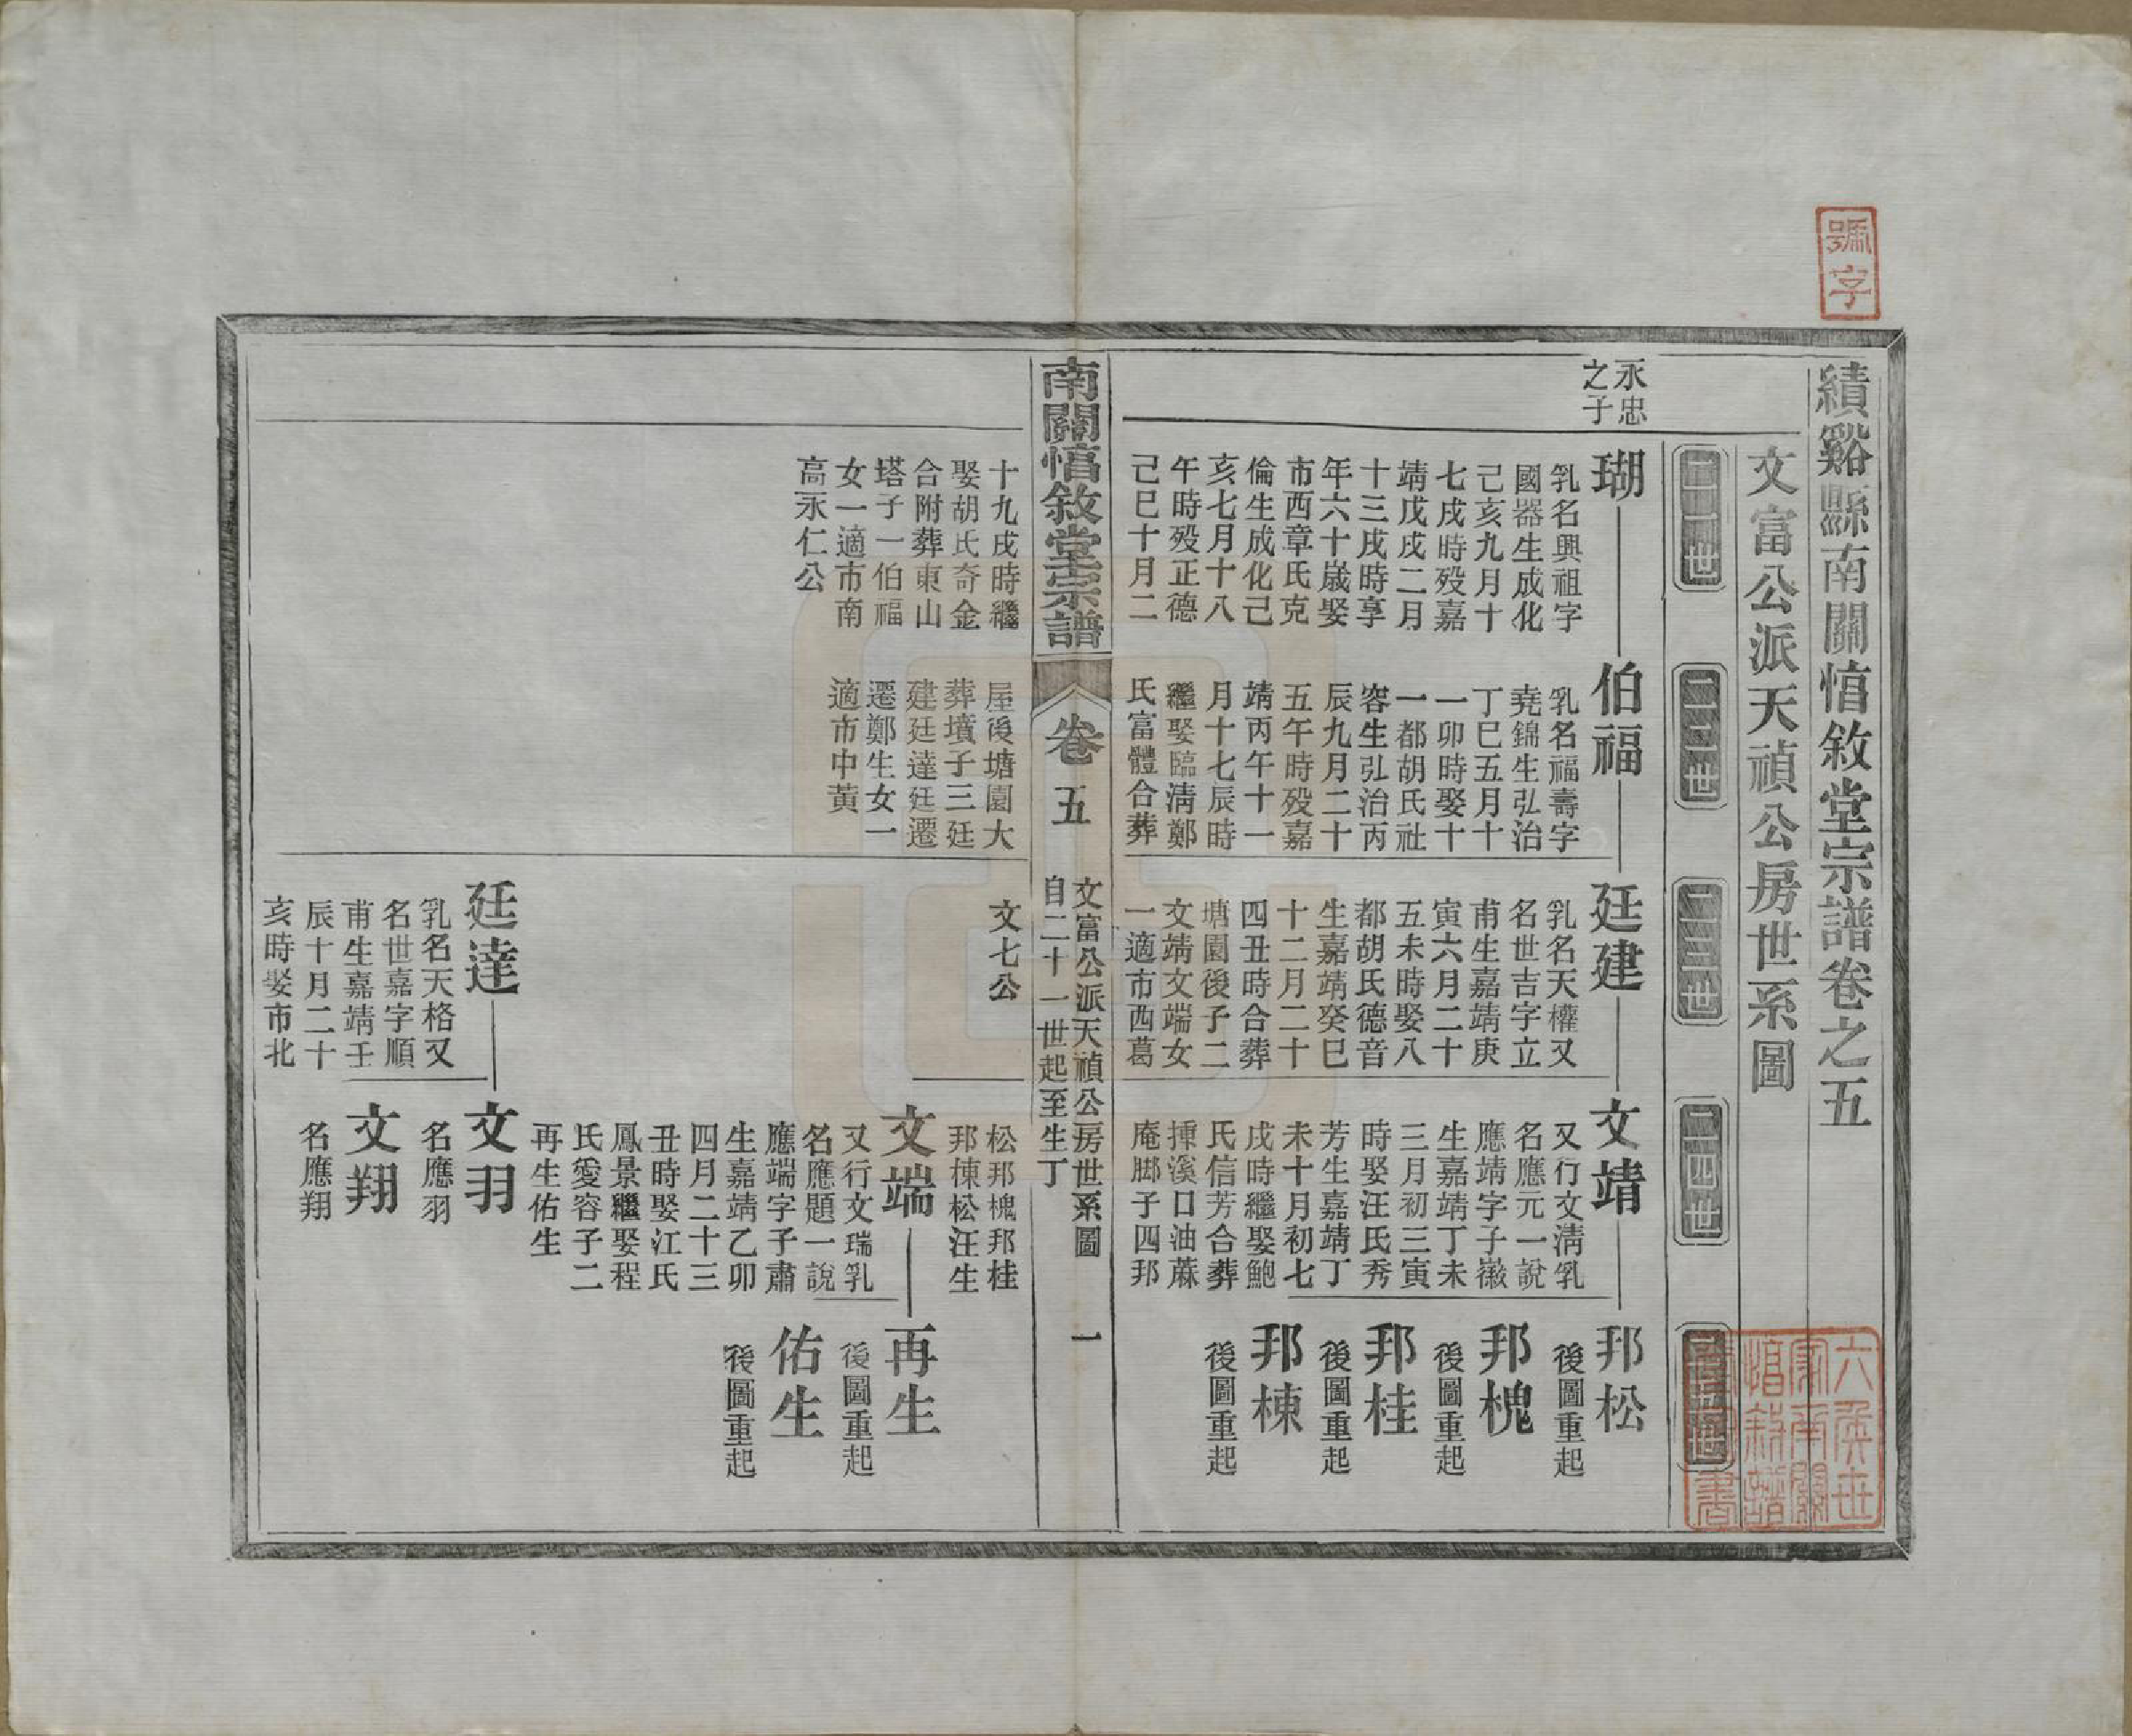 績谿縣南關惇敘堂宗譜卷之五
文富公派天禎公房世系圖
二十一世
二二世
二三世
二四世
二五世
永忠
之子
瑚
乳名興祖字
國器生成化
己亥九月十
七戌時殁嘉
靖戊戌二月
十三戌時享
年六十歲娶
市西章氏克
倫生成化己
亥七月十八
午時殁正德
己巳十月二
十九戌時繼
娶胡氏奇金
合附葬東山
塔子一伯福
女一適市南
高永仁公
伯福
乳名福壽字
堯錦生弘治
丁巳五月十
一卯時娶十
一都胡氏社
容生弘治丙
辰九月二十
五午時殁嘉
靖丙午十一
月十七辰時
繼娶臨淸鄭
氏富體合葬
屋後塘園大
葬墳子三廷
建廷達廷遷
遷鄭生女一
適市中黃
文七公
廷建
乳名天權又
名世吉字立
甫生嘉靖庚
寅六月二十
五未時娶八
都胡氏德音
生嘉靖癸巳
十二月二十
四丑時合葬
塘園後子二
文靖文端女
一適市西葛
廷達
乳名天格又
名世嘉字順
甫生嘉靖壬
辰十月二十
亥時娶市北
文靖
又行文淸乳
名應元一說
應靖字子徽
生嘉靖丁未
三月初三寅
時娶汪氏秀
芳生嘉靖丁
未十月初七
戌時繼娶鮑
氏信芳合葬
揰溪口油蔴
庵脚子四邦
松邦槐邦桂
邦棟松汪生
文端
又行文瑞乳
名應題一說
應端字子肅
生嘉靖乙卯
四月二十三
丑時娶江氏
鳳景繼娶程
氏愛容子二
再生佑生
文羽
名應羽
文翔
名應翔
邦松
後圖重起
邦槐
後圖重起
邦桂
後圖重起
邦棟
後圖重起
再生
後圖重起
佑生
後圖重起
南關惇敘堂宗譜
卷五
文富公派天禎公房世系圖
自二十一世起至生丁
一
號字